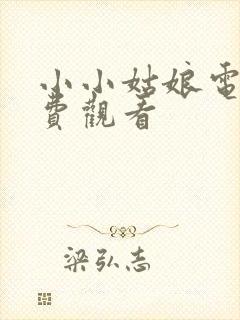 小小姑娘電
費觀看
梁弘志